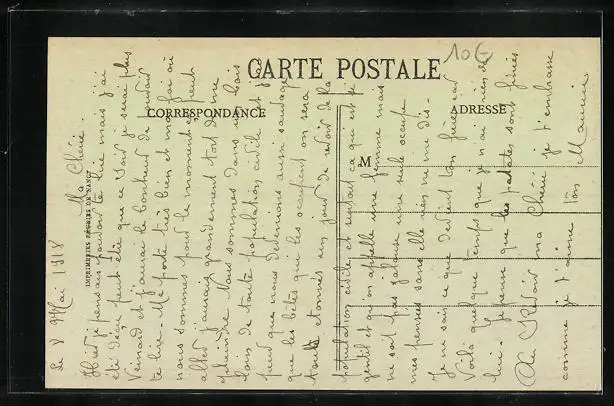 10€
CARTE POSTALE
CORRESPONDANCE
ADRESSE
M
IMPRIMERIES RÉUNIES DE NANCY
Le 8 Mai 1918
Ma Chérie
Hier je pensais pouvoir te lire mais j'ai
été déçu peut être que ce soir je serai plus
Veinard et j'aurai le bonheur de pouvoir
te lire. Me porte très bien et ma foi où
nous sommes pour le moment ça peut
aller j'aurais grandement tort de me
plaindre. Nous sommes dans un bois
loin de toute population civile et j'ai
peur que nous devenions aussi sauvages
que les bêtes qui les occupent on sera
tout étonnés un jour de revoir de la
population civile et surtout ce qui est si
gentil et qu'on appelle une femme mais
ne soit pas jalouse une seule occupe
mes pensées sans elle rien ne me dis-
Je ne sais ce que devient ton frère car
Voilà quelque temps que je n'ai rien de
lui. Je pense que les patates sont finies
Au Revoir ma Chérie je t'embrasse
comme je t'aime ton Maurice